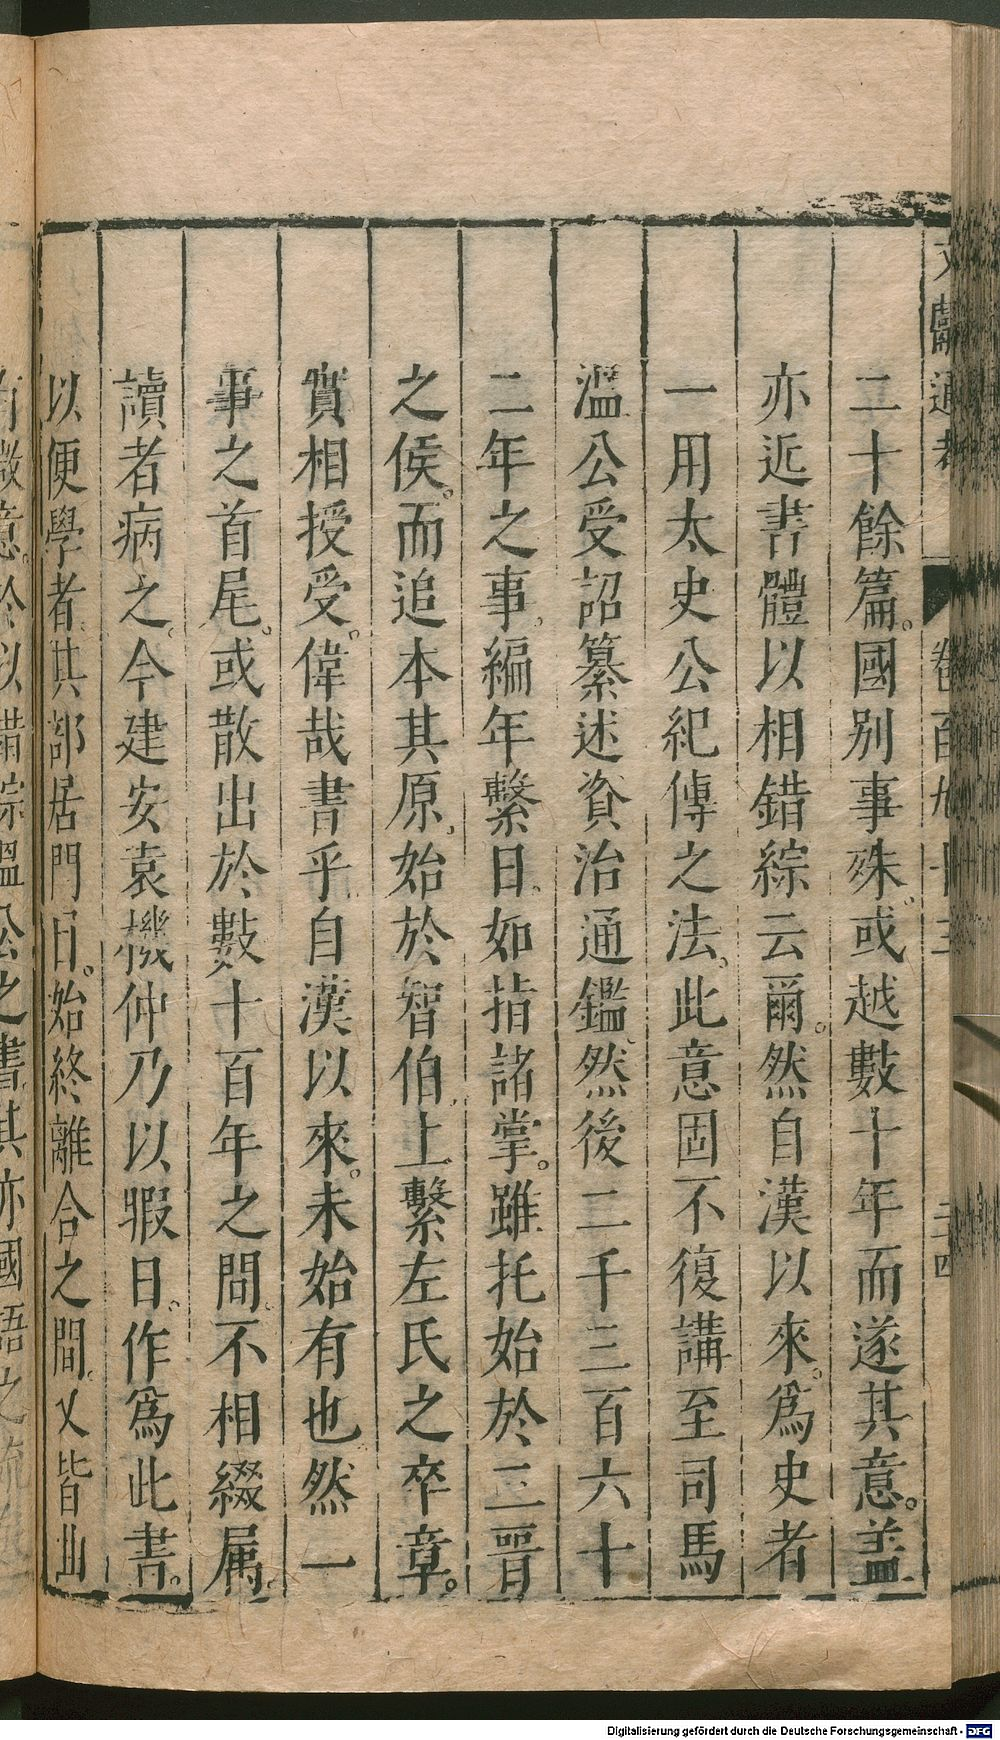 文獻通考 卷百九十三 三十四
二十餘篇。國別事殊。或越數十年而遂其意。盖
亦近書體以相錯綜云爾。然自漢以來。爲史者
一用太史公紀傳之法。此意固不復講至司馬
溫公受詔纂述資治通鑑。然後二千三百六十
二年之事。編年繫日。如指諸掌。雖托始於三晋
之侯。而追本其原。始於智伯。上繫左氏之卒章。
實相授受。偉哉書乎自漢以來。未始有也然一
事之首尾。或散出於數十百年之間。不相綴属。
讀者病之。今建安袁機仲乃以暇日。作爲此書。
以便學者。其部居門目。始終離合之間。又皆曲
有微意。於以錯綜溫公之書其亦國語之流
Digitalisierung gefördert durch die Deutsche Forschungsgemeinschaft - DFG